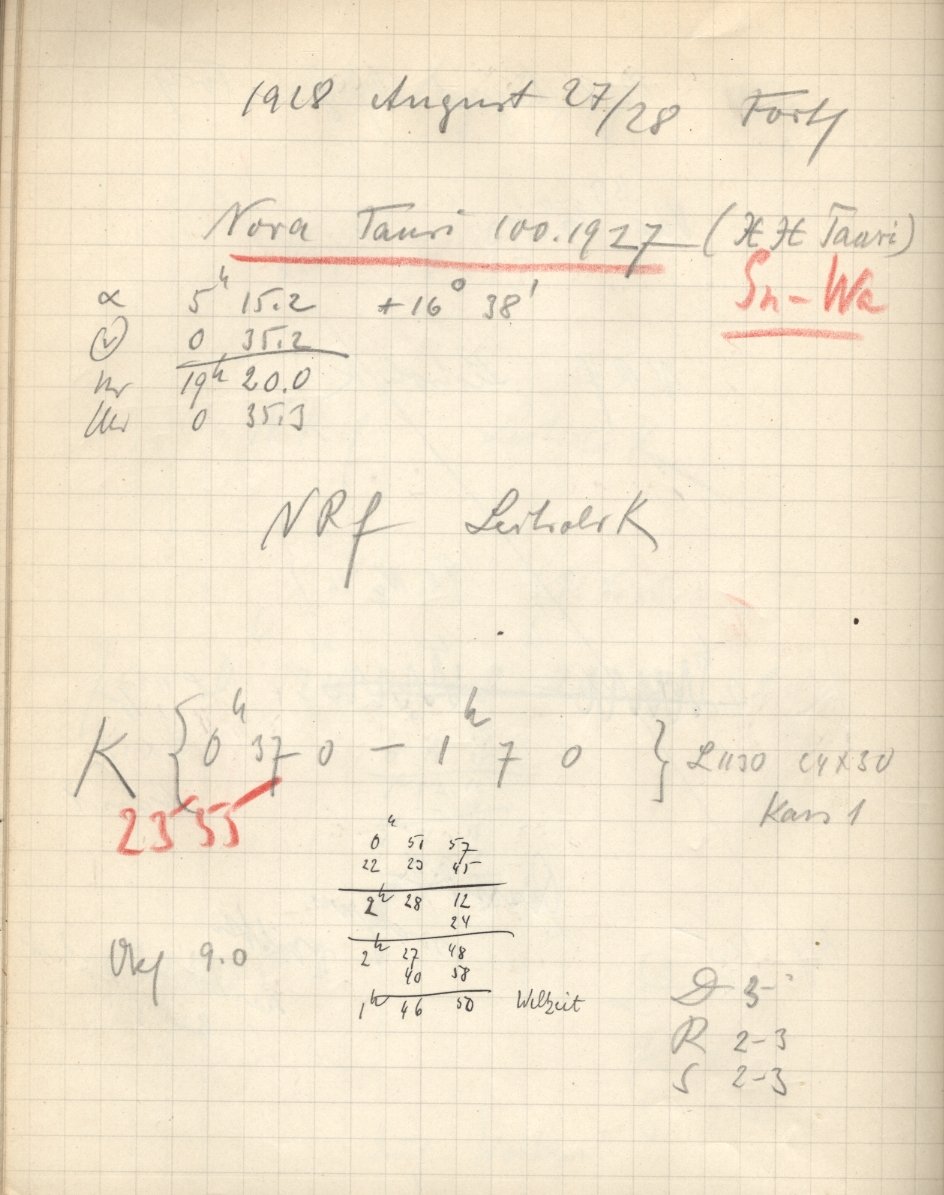 1928 August 27/28 Forts
Nova Tauri 100.1927 (XX Tauri)
Sn-Wa
α 5h 15.2 +16° 38'
0 35.2
19h 20.0
Uhr 0 35.3
NRf Leitrohr K
K { 0h 37 0 – 1h 7 0 }
Kass 1
2355
0h 51 57
22 23 45
2h 28 12
24
2h 27 48
40 58
1h 46 50 Weltzeit
Okf 9.0
D 3-
R 2-3
S 2-3